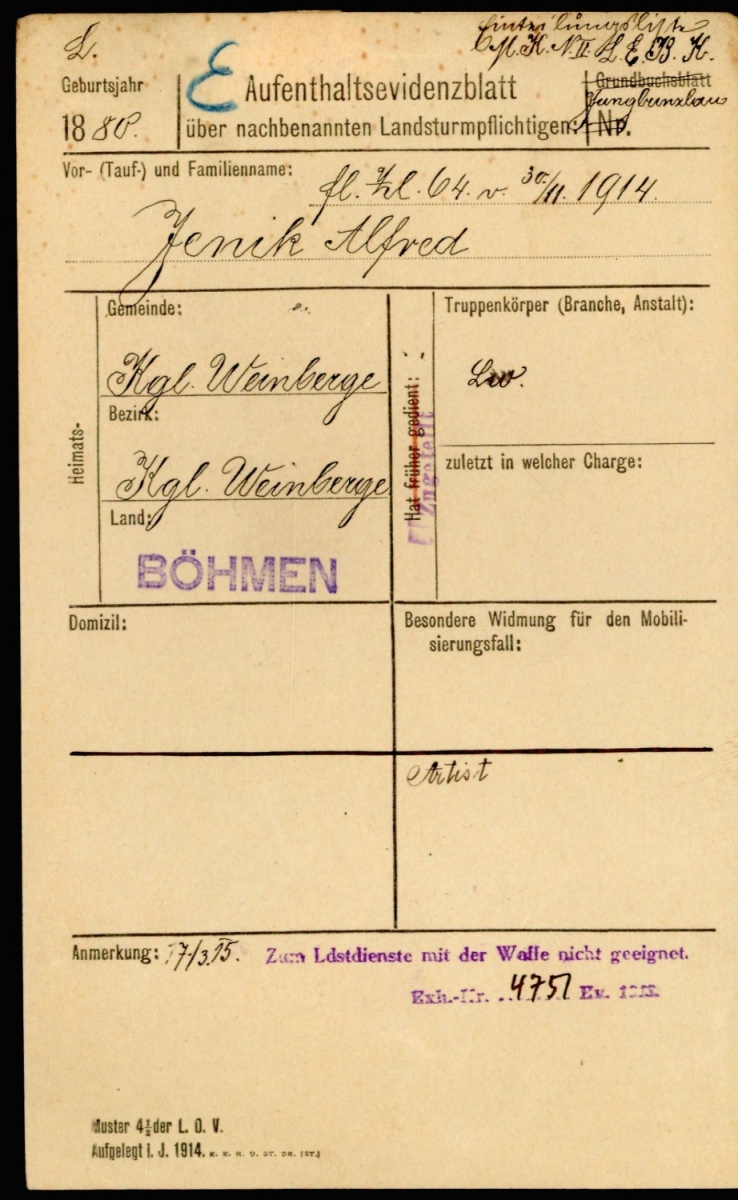 L.
Einteilungsliste
M. K. N. II. L. E. B. K.
Geburtsjahr
1880.
E
Aufenthaltsevidenzblatt
über nachbenannten Landsturmpflichtigen:
Grundbuchsblatt
Jungbunzlau
Nr.
Vor- (Tauf-) und Familienname:
fl. Zl. 64. v. 30./11. 1914.
Jenik Alfred
Heimats-
Gemeinde:
Kgl. Weinberge
Bezirk:
Kgl. Weinberge
Land:
BÖHMEN
Hat früher gedient:
Zugeteilt
Truppenkörper (Branche, Anstalt):
Lw.
zuletzt in welcher Charge:
Domizil:
Besondere Widmung für den Mobili-
sierungsfall:
Artist
Anmerkung: 17/3. 15. Zum Ldstdienste mit der Waffe nicht geeignet.
Exh.-Nr. 4751 Ev.
Muster 4½ der L. O. V.
Aufgelegt i. J. 1914. K. K. H. U. ST. DR. (ST.)